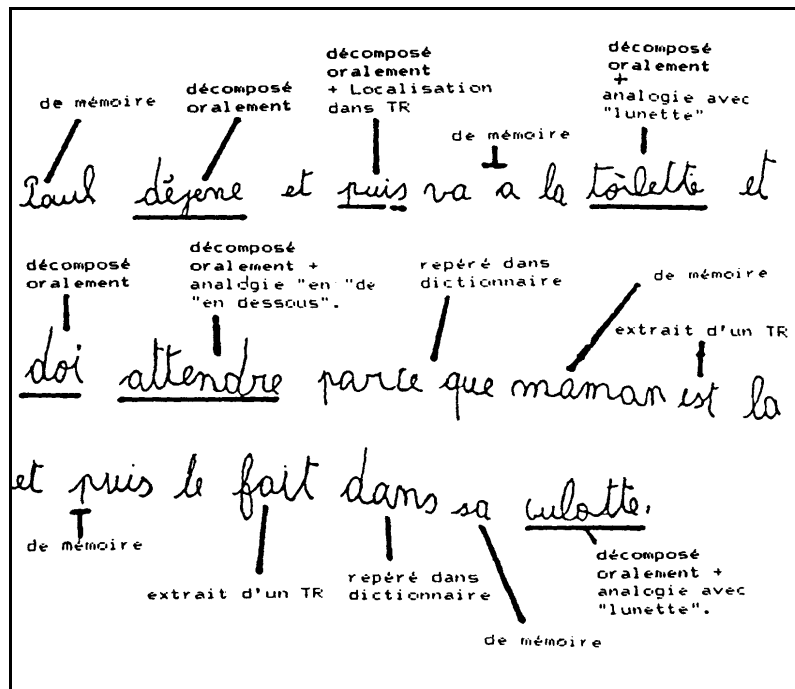 décomposé oralement
décomposé oralement + Localisation dans TR
décomposé oralement + analogie avec "lunette"
de mémoire
décomposé oralement
de mémoire
Paul déjene et puis va a la toilette et
décomposé oralement
décomposé oralement + analogie "en "de "en dessous".
repéré dans dictionnaire
de mémoire
extrait d'un TR
doi attendre parce que maman est la
et puis le fait dans sa culotte.
de mémoire
extrait d'un TR
repéré dans dictionnaire
de mémoire
décomposé oralement + analogie avec "lunette".